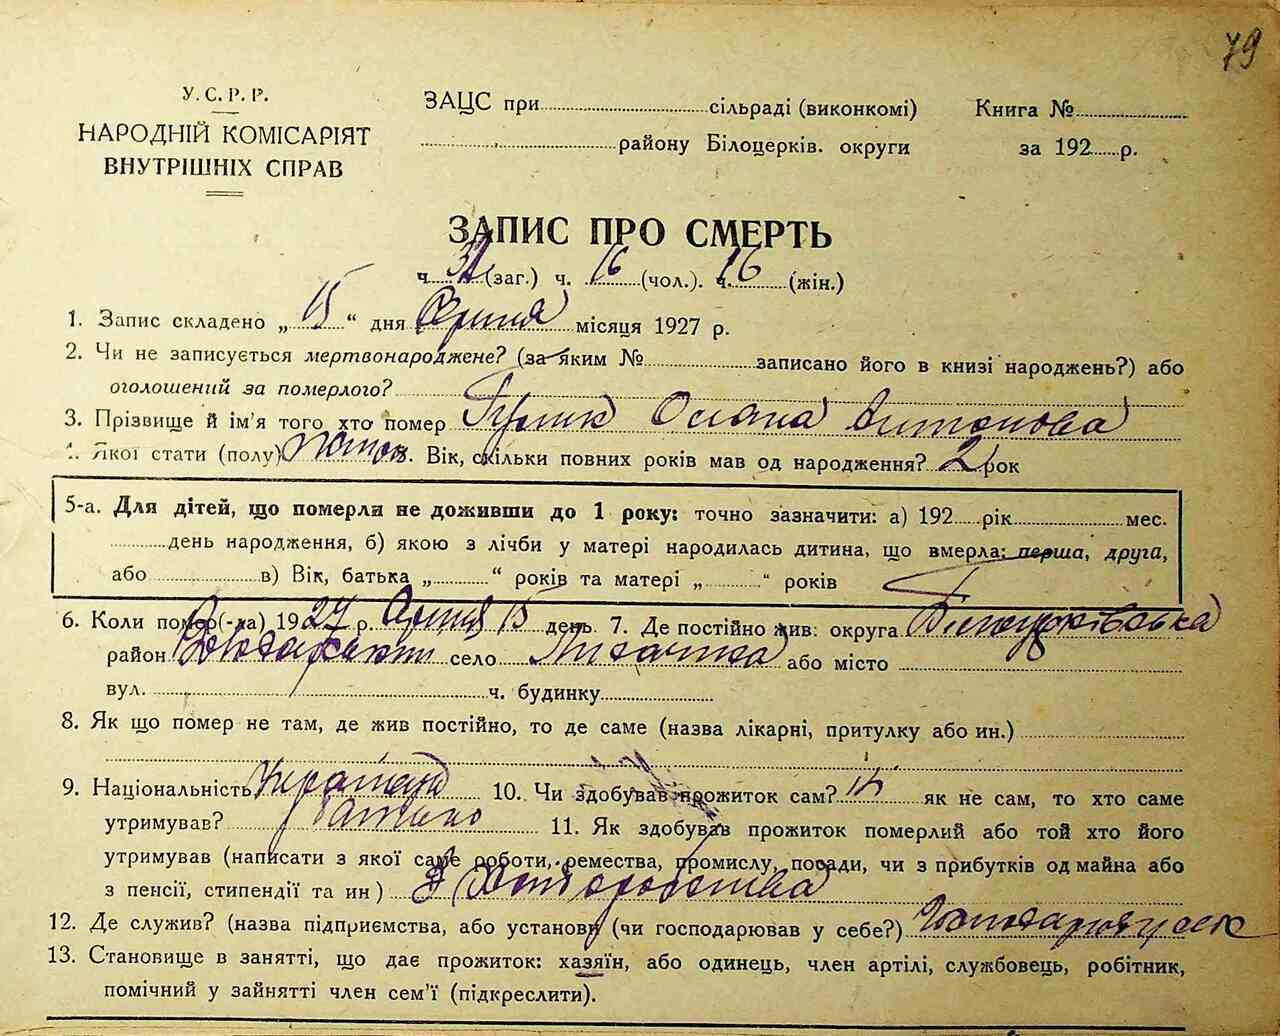 79
У.С.Р.Р.
НАРОДНІЙ КОМІСАРІЯТ
ВНУТРІШНІХ СПРАВ
ЗАЦС при сільраді (виконкомі)
району Білоцерків. округи
Книга №
за 192 р.
ЗАПИС ПРО СМЕРТЬ
ч. 32 (заг.) ч. 16 (чол.). ч. 16 (жін.)
1. Запис складено „ 15 “ дня Серпня місяця 1927 р.
2. Чи не записується мертвонароджене? (за яким № записано його в книзі народжень?) або
оголошений за померлого?
3. Прізвище й ім'я того хто помер Оляна Антонова
4. Якої стати (полу) Вік, скільки повних років мав од народження? 2 рок
5-а. Для дітей, що померли не доживши до 1 року: точно зазначити: а) 192 рік мес.
день народження, б) якою з лічби у матері народилась дитина, що вмерла: перша, друга,
або в) Вік, батька „ “ років та матері „ “ років
6. Коли помер(-ла) 1927 р. Серпня 15 день. 7. Де постійно жив: округа Білоцерківська
район село або місто
вул. ч. будинку
8. Як що помер не там, де жив постійно, то де саме (назва лікарні, притулку або ин.)
9. Національність 10. Чи здобував прожиток сам? ні як не сам, то хто саме
утримував? батько 11. Як здобував прожиток померлий або той хто його
утримував (написати з якої саме роботи, ремества, промислу, посади, чи з прибутків од майна або
з пенсії, стипендії та ин) З хліборобства
12. Де служив? (назва підприємства, або установи (чи господарював у себе?)
13. Становище в занятті, що дає прожиток: хазяїн, або одинець, член артілі, службовець, робітник,
помічний у зайнятті член сем'ї (підкреслити).